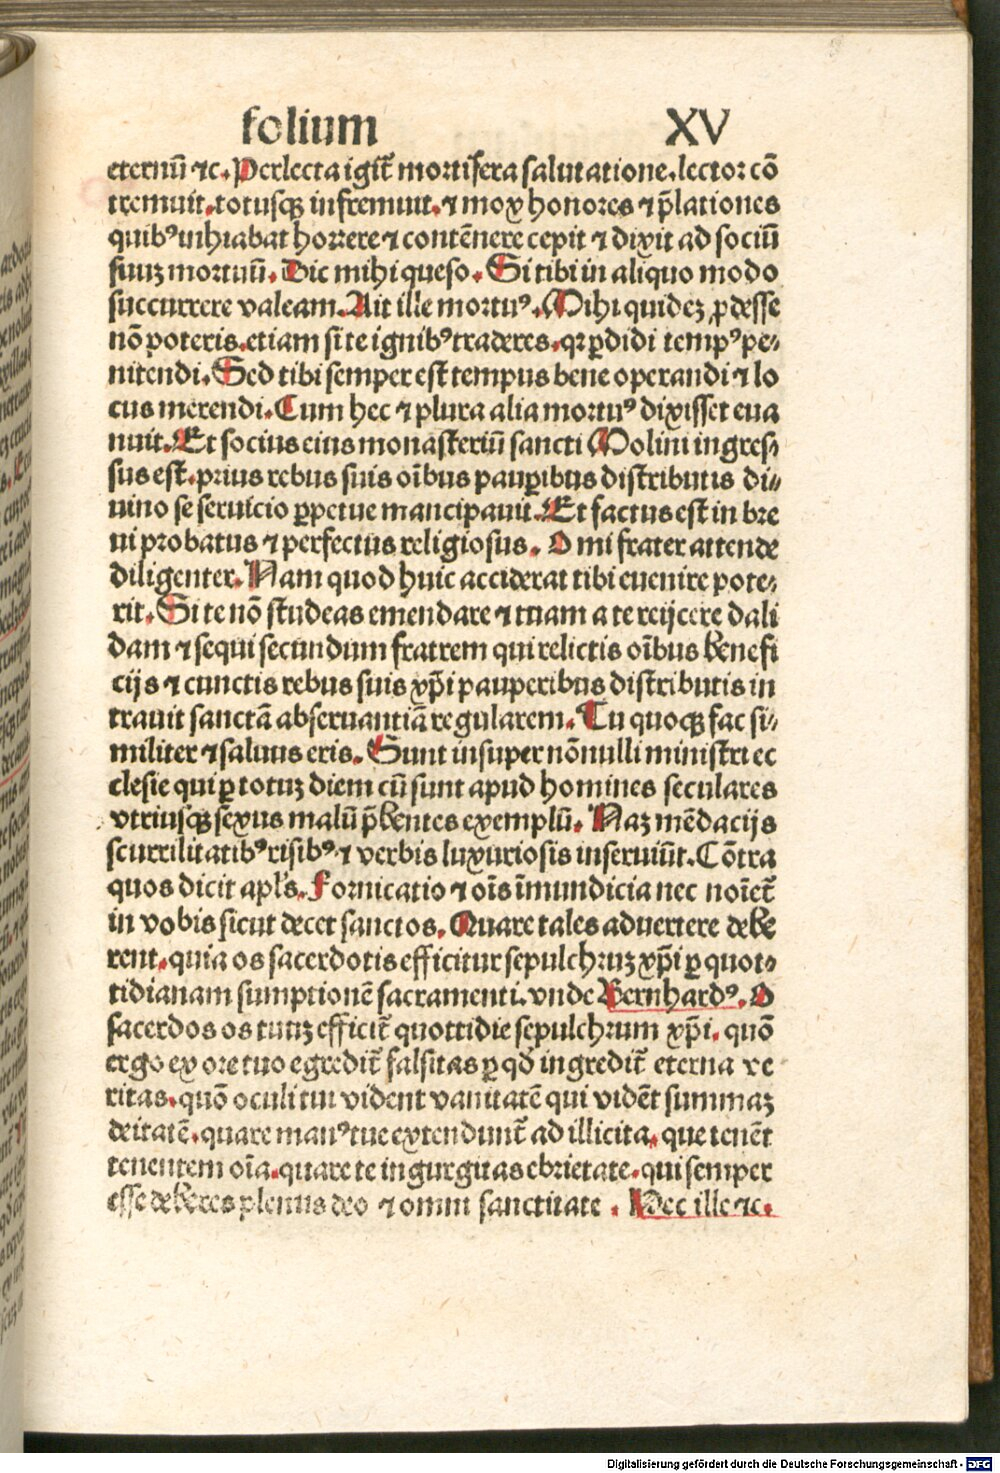 folium XV
eternū ⁊c. Perlecta igit̄ mortifera salutatione. lector cō
tremuit. totusqꝫ infremuit. ⁊ mox honores ⁊ p̄lationes
quibꝰ inhiabat horrere ⁊ contēnere cepit ⁊ dixit ad sociū
suuꝫ mortuū. Dic mihi queso. Si tibi in aliquo modo
succurrere valeam. Ait ille mortuꝰ. Mihi quideꝫ ꝓdesse
nō poteris. etiam si te ignibꝰ traderes. qꝛ ꝑdidi tempꝰ pe⸗
nitendi. Sed tibi semper est tempus bene operandi ⁊ lo
cus merendi. Cum hec ⁊ plura alia mortuꝰ dixisset eua
nuit. Et socius eius monasteriū sancti Molini ingres⸗
sus est. prius rebus suis oībus pauꝑibus distributis di⸗
uino se seruicio ꝑpetue mancipauit. Et factus est in bre
ui probatus ⁊ perfectus religiosus. O mi frater attende
diligenter. Nam quod huic acciderat tibi euenire pote⸗
rit. Si te nō studeas emendare ⁊ tuam a te reijcere dali
dam ⁊ sequi secundum fratrem qui relictis oībus benefi
cijs ⁊ cunctis rebus suis xp̄i pauperibus distributis in
trauit sanctā obseruantiā regularem. Tu quoqꝫ fac si⸗
militer ⁊ saluus eris. Sunt insuper nōnulli ministri ec
clesie qui ꝑ totuꝫ diem cū sunt apud homines seculares
vtriusqꝫ sexus malū p̄bentes exemplū. Naꝫ mēdacijs
scurrilitatibꝰ risibꝰ ⁊ verbis luxuriosis inseruiūt. Cōtra
quos dicit apl's. Fornicatio ⁊ oīs īmundicia nec noīet̄
in vobis sicut decet sanctos. Quare tales aduertere debe
rent. quia os sacerdotis efficitur sepulchruꝫ xp̄i ꝑ quot⸗
tidianam sumptionē sacramenti. vnde Bernhardꝰ. O
sacerdos os tuuꝫ efficit̄ quottidie sepulchrum xp̄i. quō
ergo ex ore tuo egredit̄ falsitas ꝑ qđ ingredit̄ eterna ve
ritas. quō oculi tui vident vanitatē qui vidēt summaꝫ
deitatē. quare manꝰ tue extendunt̄ ad illicita. que tenēt
tenentem oīa. quare te ingurgitas ebrietate. qui semper
esse deberes plenus deo ⁊ omni sanctitate. Hec ille ⁊c.
Digitalisierung gefördert durch die Deutsche Forschungsgemeinschaft - DFG